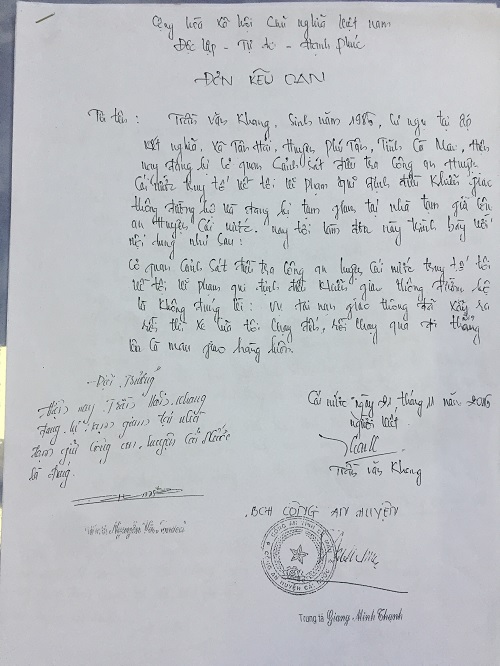 Cộng hòa xã hội chủ nghĩa Việt nam
Độc lập - Tự do - Hạnh Phúc
ĐƠN KÊU OAN
Tôi tên : Trần văn Khang, sinh năm 1986, cư ngụ tại ấp
Kết nghĩa, Xã Tân Hải, Huyện Phú Tân, Tỉnh Cà Mau, Hiện
nay đang bị cơ quan Cảnh sát điều tra Công an Huyện
Cái nước truy tố về tội vi phạm qui định điều khiển giao
thông đường bộ và đang bị tạm giam tại nhà tạm giữ Công
an Huyện Cái nước. nay tôi làm đơn này trình bày với
nội dung như sau :
Cơ quan Cảnh Sát điều tra Công an huyện Cái nước truy tố tôi
về tội vi phạm qui định điều khiển giao thông đường bộ
là không đúng lời : vụ tai nạn giao thông đã xảy ra
rồi thì xe của tôi chạy đến, rồi chạy qua đi thẳng
lên Cà mau giao hàng luôn.
Cái nước ngày 21 tháng 11 năm 2015
người viết
Trần văn Khang
- Đội Trưởng
Hiện nay Trần Văn Khang
đang bị tạm giam tại nhà
tạm giữ Công an huyện Cái Nước
là đúng.
Nguyễn Văn
BCH CÔNG AN HUYỆN
CÔNG AN TỈNH CÀ MAU
CÔNG AN HUYỆN CÁI NƯỚC
Trung tá Giang Minh Thạnh